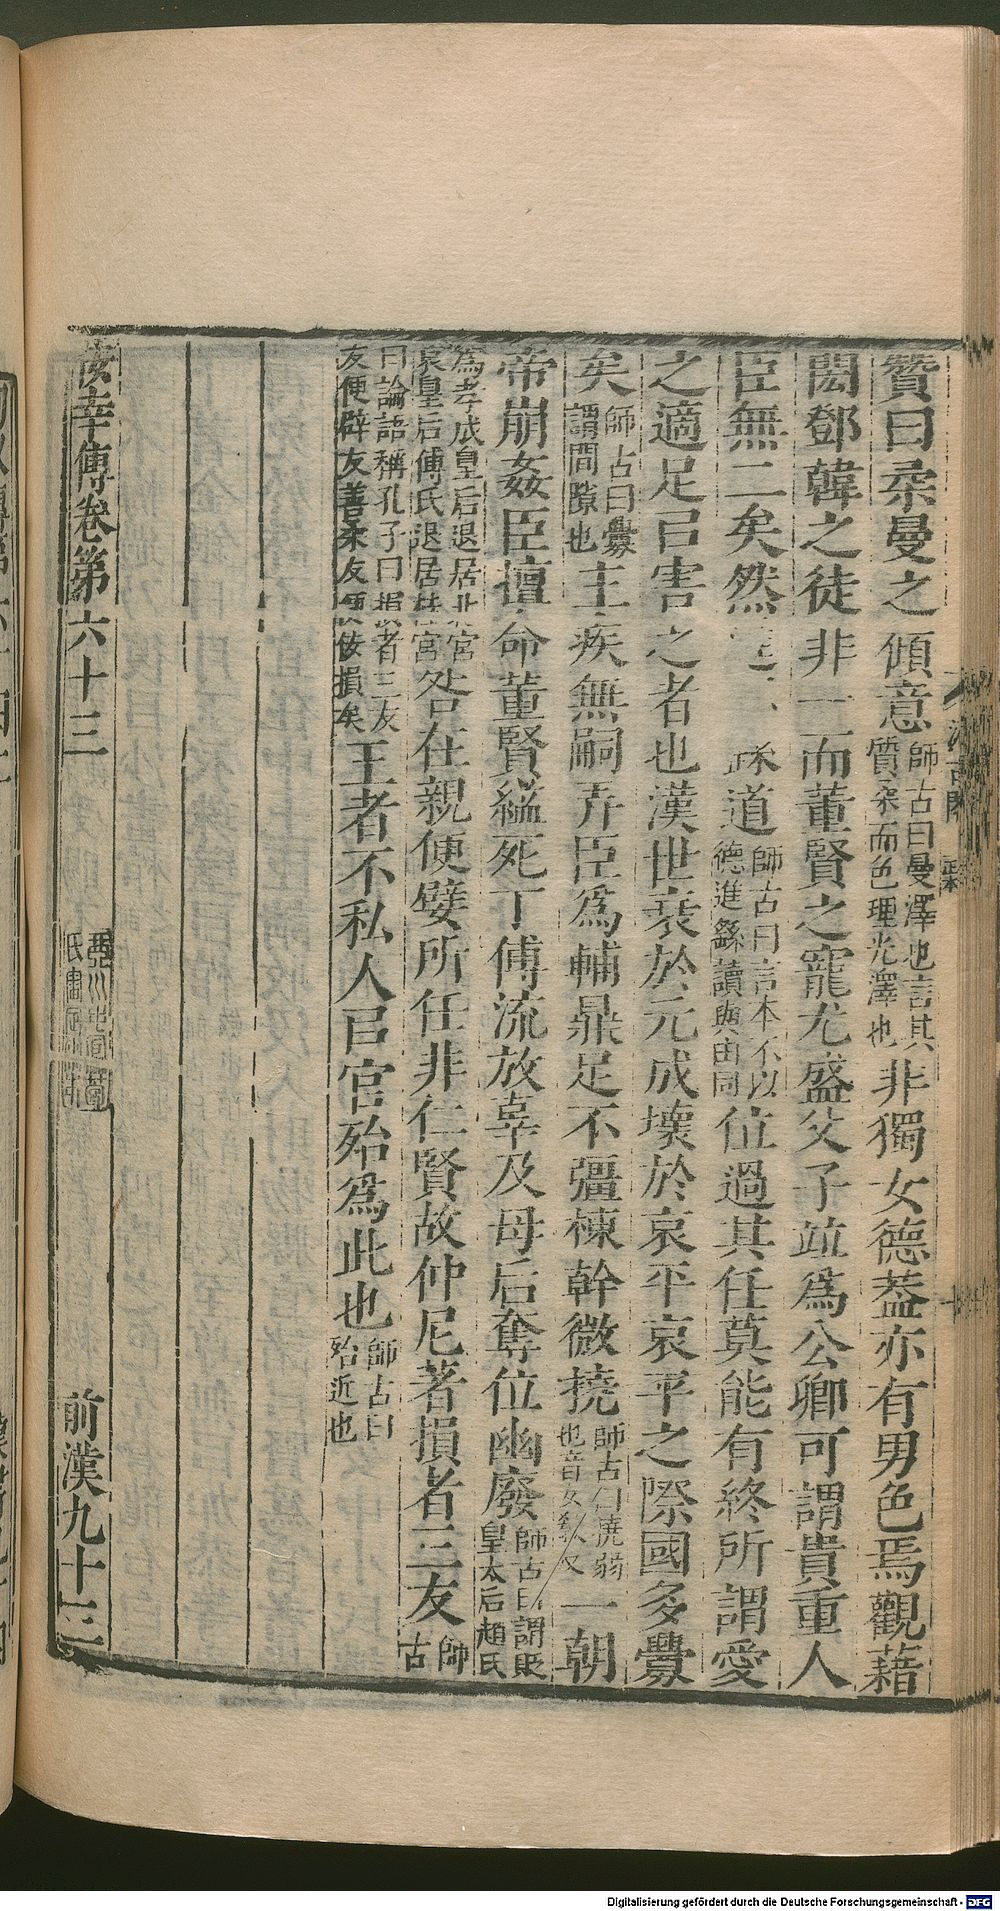 贊曰柔曼之傾意師古曰曼澤也言其質柔而色理光澤也非獨女德蓋亦有男色焉觀藉
閎鄧韓之徒非一而董賢之寵尤盛父子竝爲公卿可謂貴重人
臣無二矣然 道師古曰言本不以德進繇讀與由同位過其任莫能有終所謂愛
之適足㠯害之者也漢世衰於元成壞於哀平哀平之際國多釁
矣師古曰釁謂間隙也主疾無嗣弄臣爲輔鼎足不彊棟幹微撓師古曰撓弱也音女敎又一朝
帝崩姦臣擅命董賢縊死丁傅流放辜及母后奪位幽廢師古曰謂貶皇太后趙氏
爲孝成皇后退居北宮哀皇后傅氏退居桂宮咎在親便嬖所任非仁賢故仲尼著損者三友師古
曰論語稱孔子曰損者三友友便辟友善柔友便佞損矣王者不私人㠯官殆爲此也師古曰殆近也
佞幸傳卷第六十三 前漢九十三
Digitalisierung gefördert durch die Deutsche Forschungsgemeinschaft - DFG